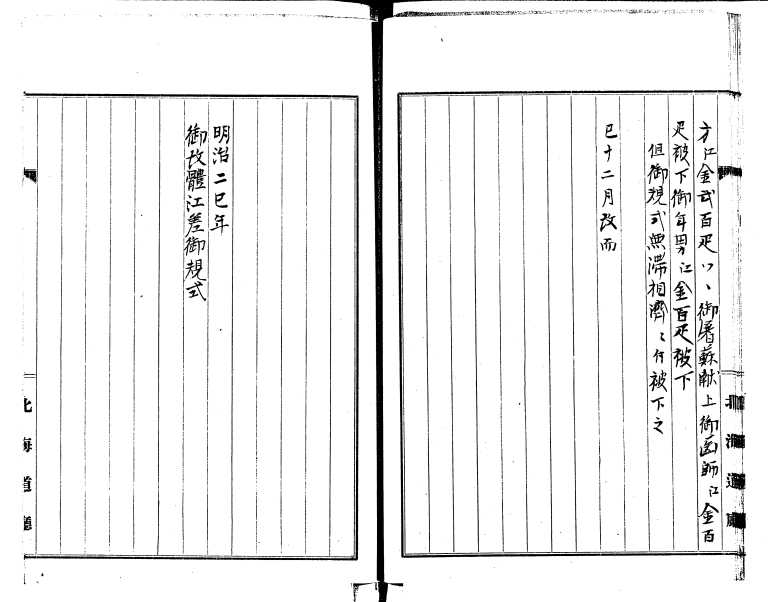 方江金弐百疋ツヽ御屠蘇献上御医師江金百
疋被下御年男江金百疋被下
但御規式無滞相濟候ニ付被下之
巳十二月改而
北海道廳
明治二巳年
御改體江差御規式
北海道廳